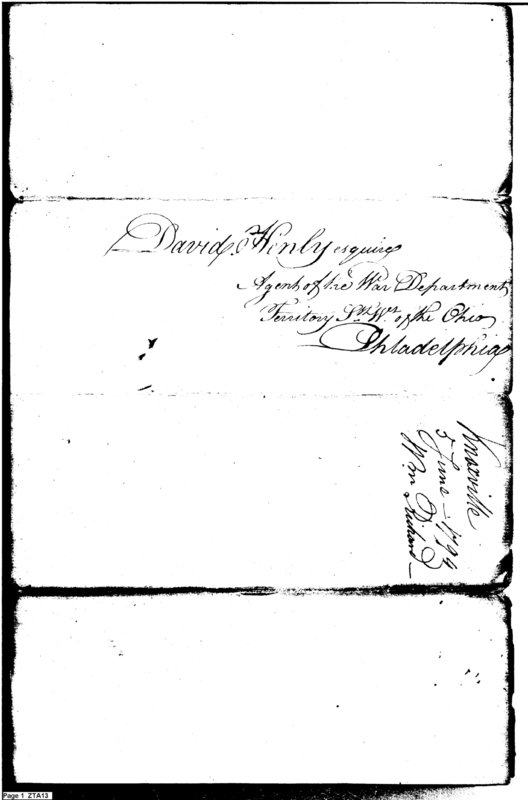 David Hinly esquire
Agent of the War Department
Territory So. Wt. of the Ohio
Phladelphia
Knoxville
5 June 1794
Wm
Page 1 ZTA13